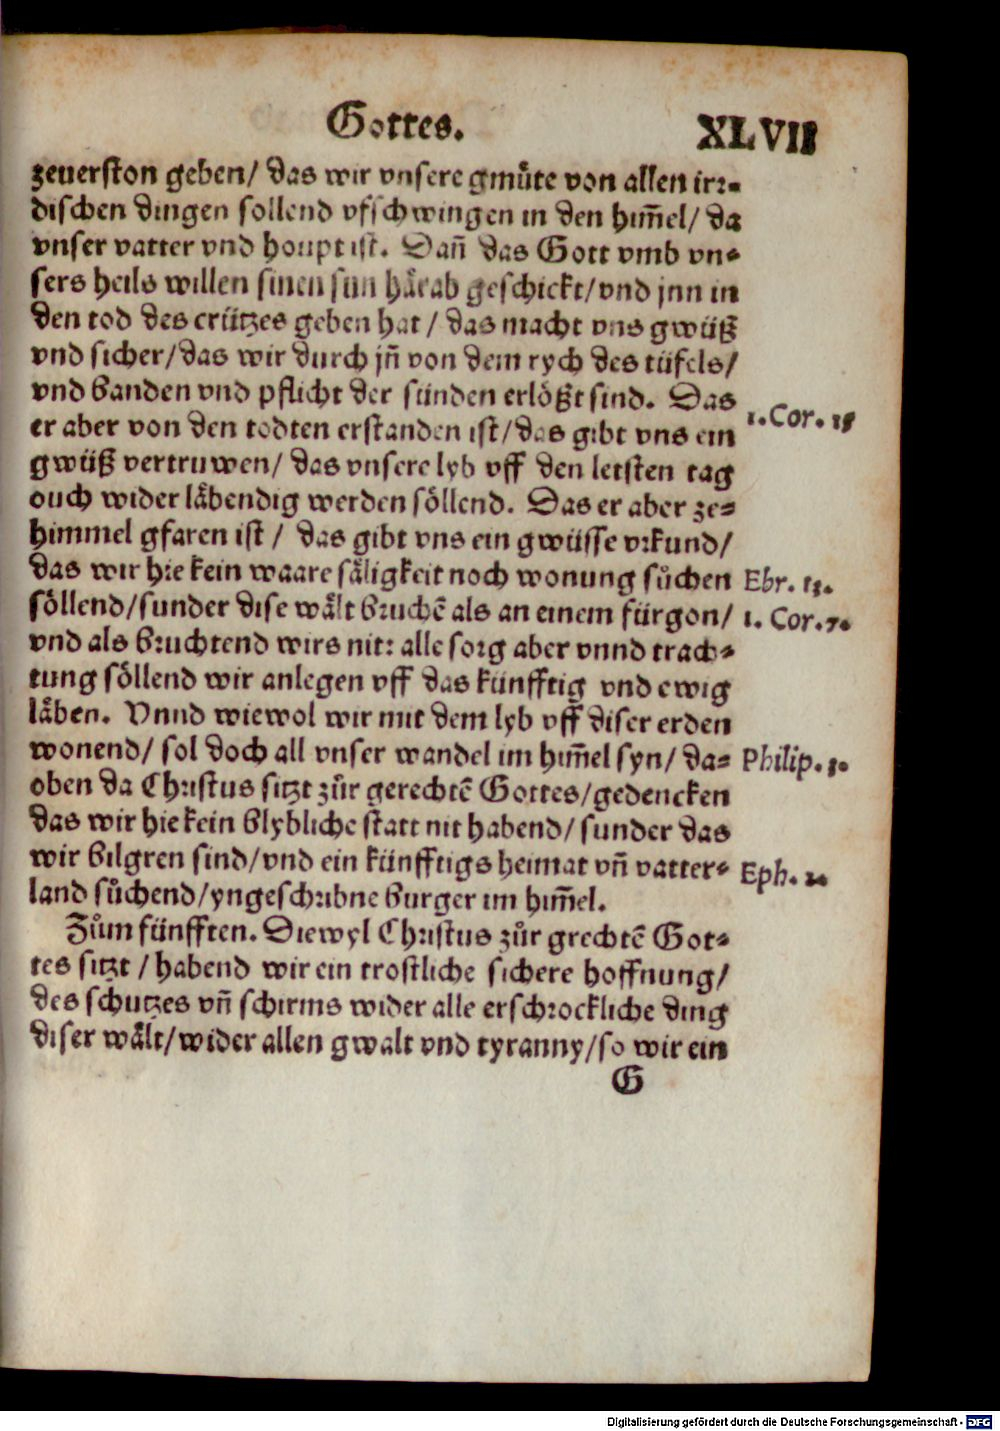 Gottes. XLVII
zeuerston geben/ das wir vnsere gmuͤte von allen irr⸗
dischen dingen sollend vfschwingen in den him̃el/ da
vnser vatter vnd houpt ist. Dañ das Gott vmb vn⸗
sers heils willen sinen sun haͤrab geschickt/vnd jnn in
den tod des crützes geben hat / das macht vns gwüß
vnd sicher/das wir durch jñ von dem rych des tüfels/
vnd banden vnd pflicht der sünden erlößt sind. Das
er aber von den todten erstanden ist/das gibt vns ein
1. Cor. 15
gwüß vertruwen/ das vnsere lyb vff den letsten tag
ouch wider laͤbendig werden soͤllend. Das er aber ze⸗
himmel gfaren ist / das gibt vns ein gwüsse vrkund/
das wir hie kein waare saͤligkeit noch wonung suͦchen
Ebr. 13.
soͤllend/sunder dise waͤlt bruchẽ als an einem fürgon/
1. Cor. 7.
vnd als bruchtend wirs nit: alle sorg aber vnnd trach⸗
tung soͤllend wir anlegen vff das künfftig vnd ewig
laͤben. Vnnd wiewol wir mit dem lyb vff diser erden
wonend/ sol doch all vnser wandel im him̃el syn/ da⸗
Philip. 3.
oben da Christus sitzt zuͦr gerechtẽ Gottes/gedencken
das wir hie kein blybliche statt nit habend/ sunder das
wir bilgren sind/vnd ein künfftigs heimat vñ vatter⸗
Eph. 2.
land suͦchend/yngeschribne burger im him̃el.
Zuͦm fünfften. Diewyl Christus zuͦr grechtẽ Got⸗
tes sitzt / habend wir ein trostliche sichere hoffnung/
des schutzes vñ schirms wider alle erschrockliche ding
diser waͤlt/wider allen gwalt vnd tyranny/so wir ein
G
Digitalisierung gefördert durch die Deutsche Forschungsgemeinschaft - DFG